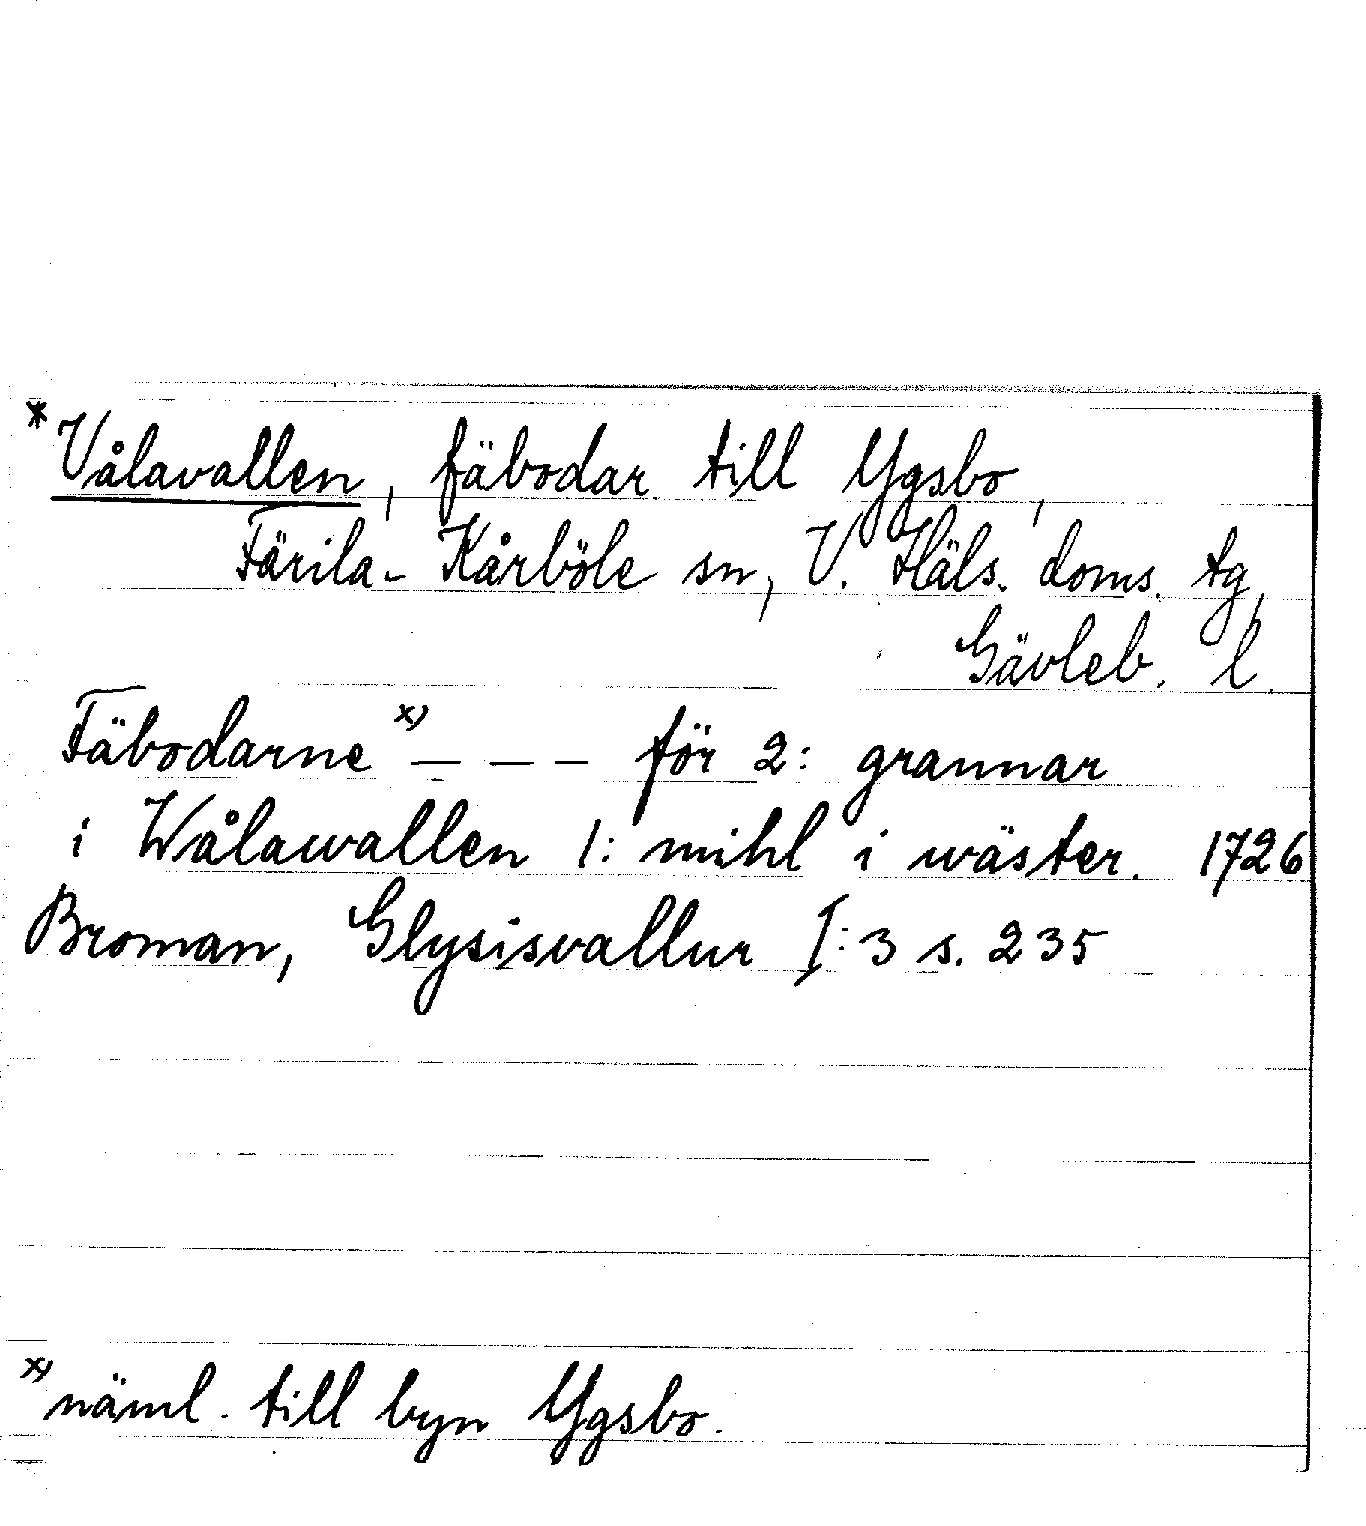 * Vålavallen, fäbodar till Ygsbo,
Färila-Kårböle sn, V. Häls. doms. tg,
Gävleb. l.
Fäbodarne x) _ _ _ för 2: grannar
i Wålawallen 1: mihl i wäster. 1726
Broman, Glysisvallur I:3 s. 235
x) näml. till byn Ygsbo.